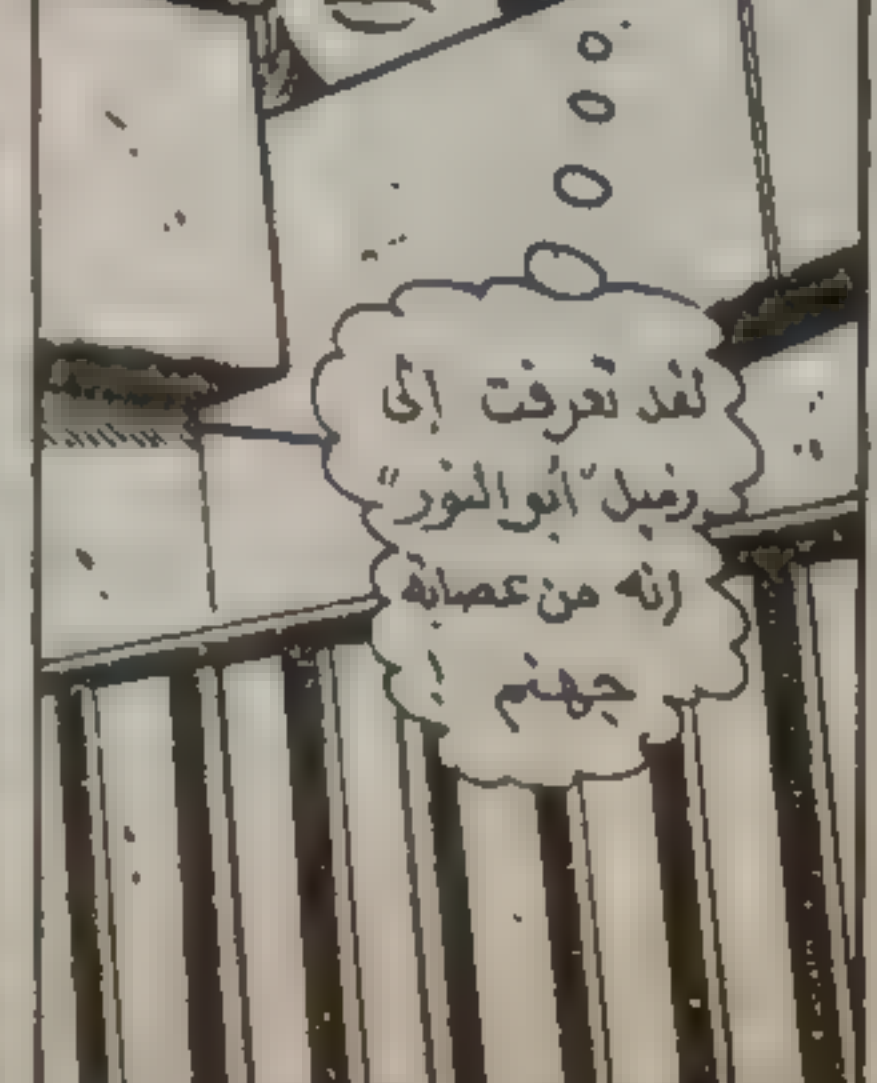 لقد تعرفت إلى
زميل "أبو النور"
إنه من عصابة
جهنم